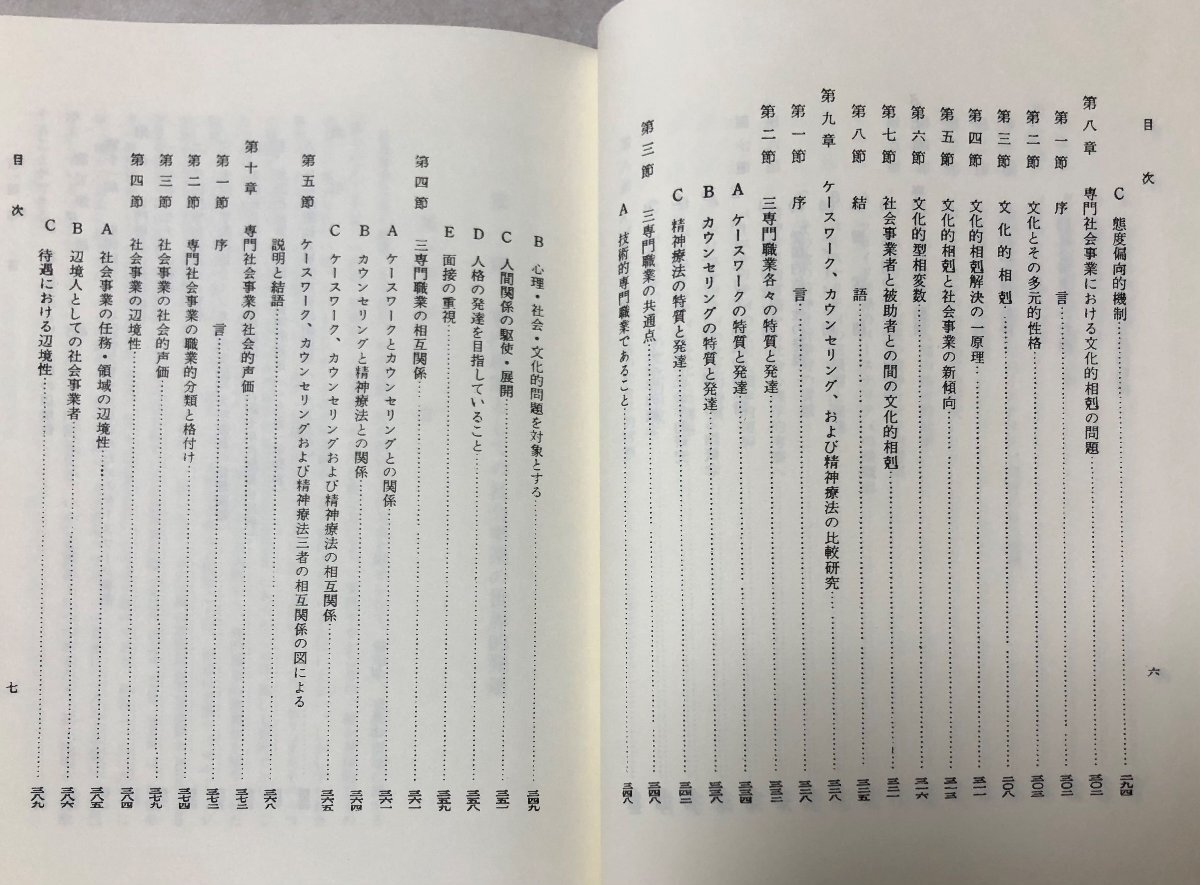 目次
C 態度偏向的機制……二九四
第八章 専門社会事業における文化的相剋の問題……三〇二
第一節 序言……三〇二
第二節 文化とその多元的性格……三〇三
第三節 文化的相剋……三〇八
第四節 文化的相剋解決の一原理……三一一
第五節 文化的相剋と社会事業の新傾向……三一三
第六節 文化的型相変数……三一六
第七節 社会事業者と被助者との間の文化的相剋……三二一
第八節 結語……三二五
第九章 ケースワーク、カウンセリング、および精神療法の比較研究……三二八
第一節 序言……三二八
第二節 三専門職業各々の特質と発達……三三二
A ケースワークの特質と発達……三三四
B カウンセリングの特質と発達……三三八
C 精神療法の特質と発達……三四二
第三節 三専門職業の共通点……三四八
A 技術的専門職業であること……三四八
六
B 心理・社会・文化的問題を対象とする……三四九
C 人間関係の駆使・展開……三五一
D 人格の発達を目指していること……三五八
E 面接の重視……三五九
第四節 三専門職業の相互関係……三六一
A ケースワークとカウンセリングとの関係……三六一
B カウンセリングと精神療法との関係……三六四
C ケースワーク、カウンセリングおよび精神療法の相互関係……三六五
第五節 ケースワーク、カウンセリングおよび精神療法三者の相互関係の図による
説明と結語……三六八
第十章 専門社会事業の社会的声価……三七三
第一節 序言……三七三
第二節 専門社会事業の職業的分類と格付け……三七四
第三節 社会事業の社会的声価……三七九
第四節 社会事業の辺境性……三八四
A 社会事業の任務・領域の辺境性……三八五
B 辺境人としての社会事業者……三八六
C 待遇における辺境性……三八九
目次
七